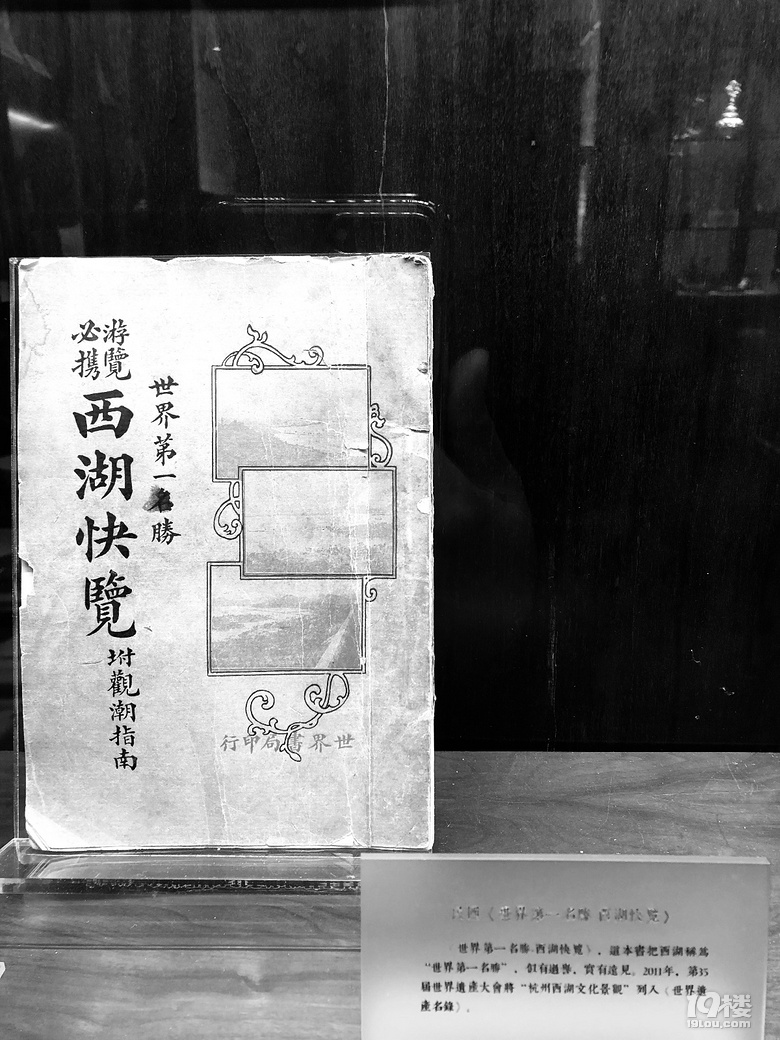 游覽
必攜
世界第一名勝
西湖快覽
坿觀潮指南
世界書局印行
民國《世界第一名勝 西湖快覽》
《世界第一名勝 西湖快覽》，這本書把西湖稱爲
“世界第一名勝”，似有過譽，實有遠見。2011年，第35
屆世界遺產大會將“杭州西湖文化景觀”列入《世界遺
產名錄》。
19楼
19lou.com